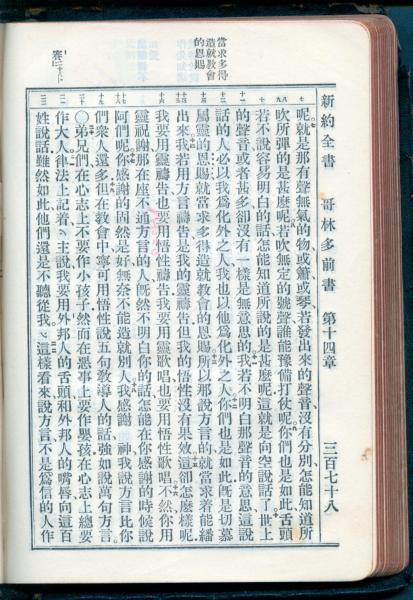 新約全書　哥林多前書　第十四章　三百七十八
當求多得
造就教會
的恩賜
七
八
九
十
十一
十二
十三
十四
十五
十六
十七
十八
十九
二十
二一
二二
呢就是那有聲無氣的物或簫或琴若發出來的聲音沒有分別怎能知道所
吹所彈的是甚麼呢若吹無定的號聲誰能豫備打仗呢你們也是如此舌頭
若不說容易明白的話怎能知道所說的是甚麼呢這就是向空說話了世上
的聲音或者甚多卻沒有一樣是無意思的我若不明白那聲音的意思這說
話的人必以我為化外之人我也以他為化外之人你們也是如此既是切慕
屬靈的恩賜就當求多得造就教會的恩賜所以那說方言的就當求着能繙
出來我若用方言禱告是我的靈禱告但我的悟性沒有果效這卻怎麼樣呢
我要用靈禱告也要用悟性禱告我要用靈歌唱也要用悟性歌唱不然你用
靈祝謝那在座不通方言的人既然不明白你的話怎能在你感謝的時候說
阿們呢你感謝的固然是好無奈不能造就別人我感謝　神我說方言比你
們衆人還多但在教會中寧可用悟性說五句教導人的話強如說萬句方言。
〇弟兄們在心志上不要作小孩子然而在惡事上要作嬰孩在心志上總要
作大人律法上記着、主說我要用外邦人的舌頭和外邦人的嘴唇向這百
姓說話雖然如此他們還是不聽從我、這樣看來說方言不是爲信的人作